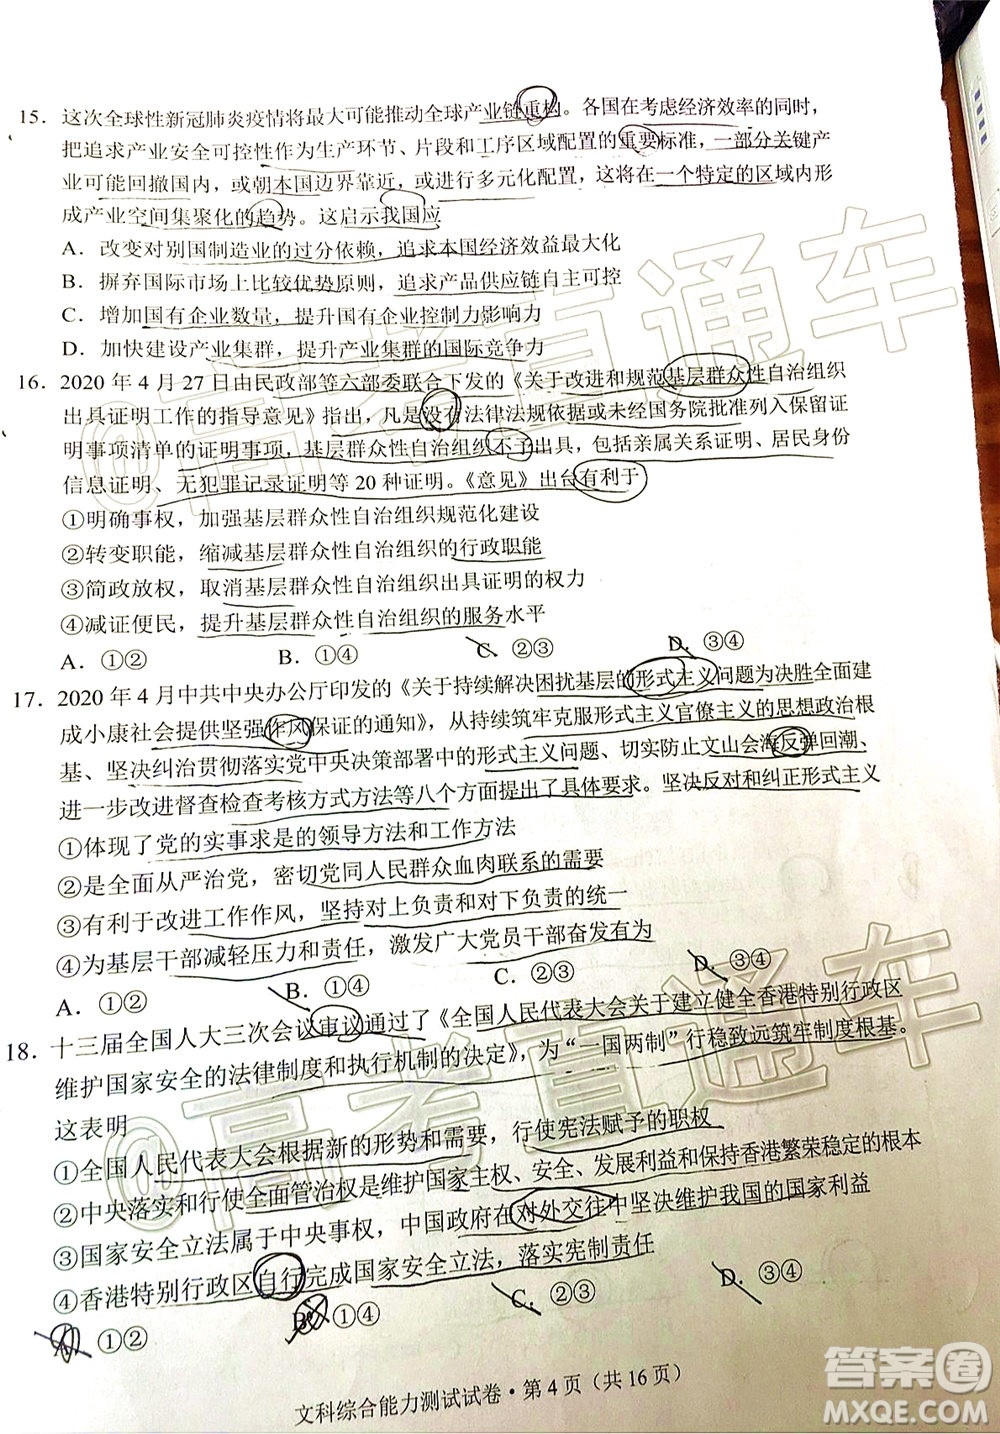 15. 这次全球性新冠肺炎疫情将最大可能推动全球产业链重构。各国在考虑经济效率的同时，
把追求产业安全可控性作为生产环节、片段和工序区域配置的重要标准，一部分关键产
业可能回撤国内，或朝本国边界靠近，或进行多元化配置，这将在一个特定的区域内形
成产业空间集聚化的趋势。这启示我国应
A．改变对别国制造业的过分依赖，追求本国经济效益最大化
B．摒弃国际市场上比较优势原则，追求产品供应链自主可控
C．增加国有企业数量，提升国有企业控制力影响力
D．加快建设产业集群，提升产业集群的国际竞争力
16. 2020 年 4 月 27 日由民政部等六部委联合下发的《关于改进和规范基层群众性自治组织
出具证明工作的指导意见》指出，凡是没有法律法规依据或未经国务院批准列入保留证
明事项清单的证明事项，基层群众性自治组织不予出具，包括亲属关系证明、居民身份
信息证明、无犯罪记录证明等 20 种证明。《意见》出台有利于
①明确事权，加强基层群众性自治组织规范化建设
②转变职能，缩减基层群众性自治组织的行政职能
③简政放权，取消基层群众性自治组织出具证明的权力
④减证便民，提升基层群众性自治组织的服务水平
A．①② B．①④ C．②③ D．③④
17. 2020 年 4 月中共中央办公厅印发的《关于持续解决困扰基层的形式主义问题为决胜全面建
成小康社会提供坚强作风保证的通知》，从持续筑牢克服形式主义官僚主义的思想政治根
基、坚决纠治贯彻落实党中央决策部署中的形式主义问题、切实防止文山会海反弹回潮、
进一步改进督查检查考核方式方法等八个方面提出了具体要求。坚决反对和纠正形式主义
①体现了党的实事求是的领导方法和工作方法
②是全面从严治党，密切党同人民群众血肉联系的需要
③有利于改进工作作风，坚持对上负责和对下负责的统一
④为基层干部减轻压力和责任，激发广大党员干部奋发有为
A．①② B．①④ C．②③ D．③④
18. 十三届全国人大三次会议审议通过了《全国人民代表大会关于建立健全香港特别行政区
维护国家安全的法律制度和执行机制的决定》，为“一国两制”行稳致远筑牢制度根基。
这表明
①全国人民代表大会根据新的形势和需要，行使宪法赋予的职权
②中央落实和行使全面管治权是维护国家主权、安全、发展利益和保持香港繁荣稳定的根本
③国家安全立法属于中央事权，中国政府在对外交往中坚决维护我国的国家利益
④香港特别行政区自行完成国家安全立法，落实宪制责任
A．①② B．①④ C．②③ D．③④
文科综合能力测试试卷·第 4 页（共 16 页）
@高考直通车
@高考直通车
答案圈
MXQE.COM